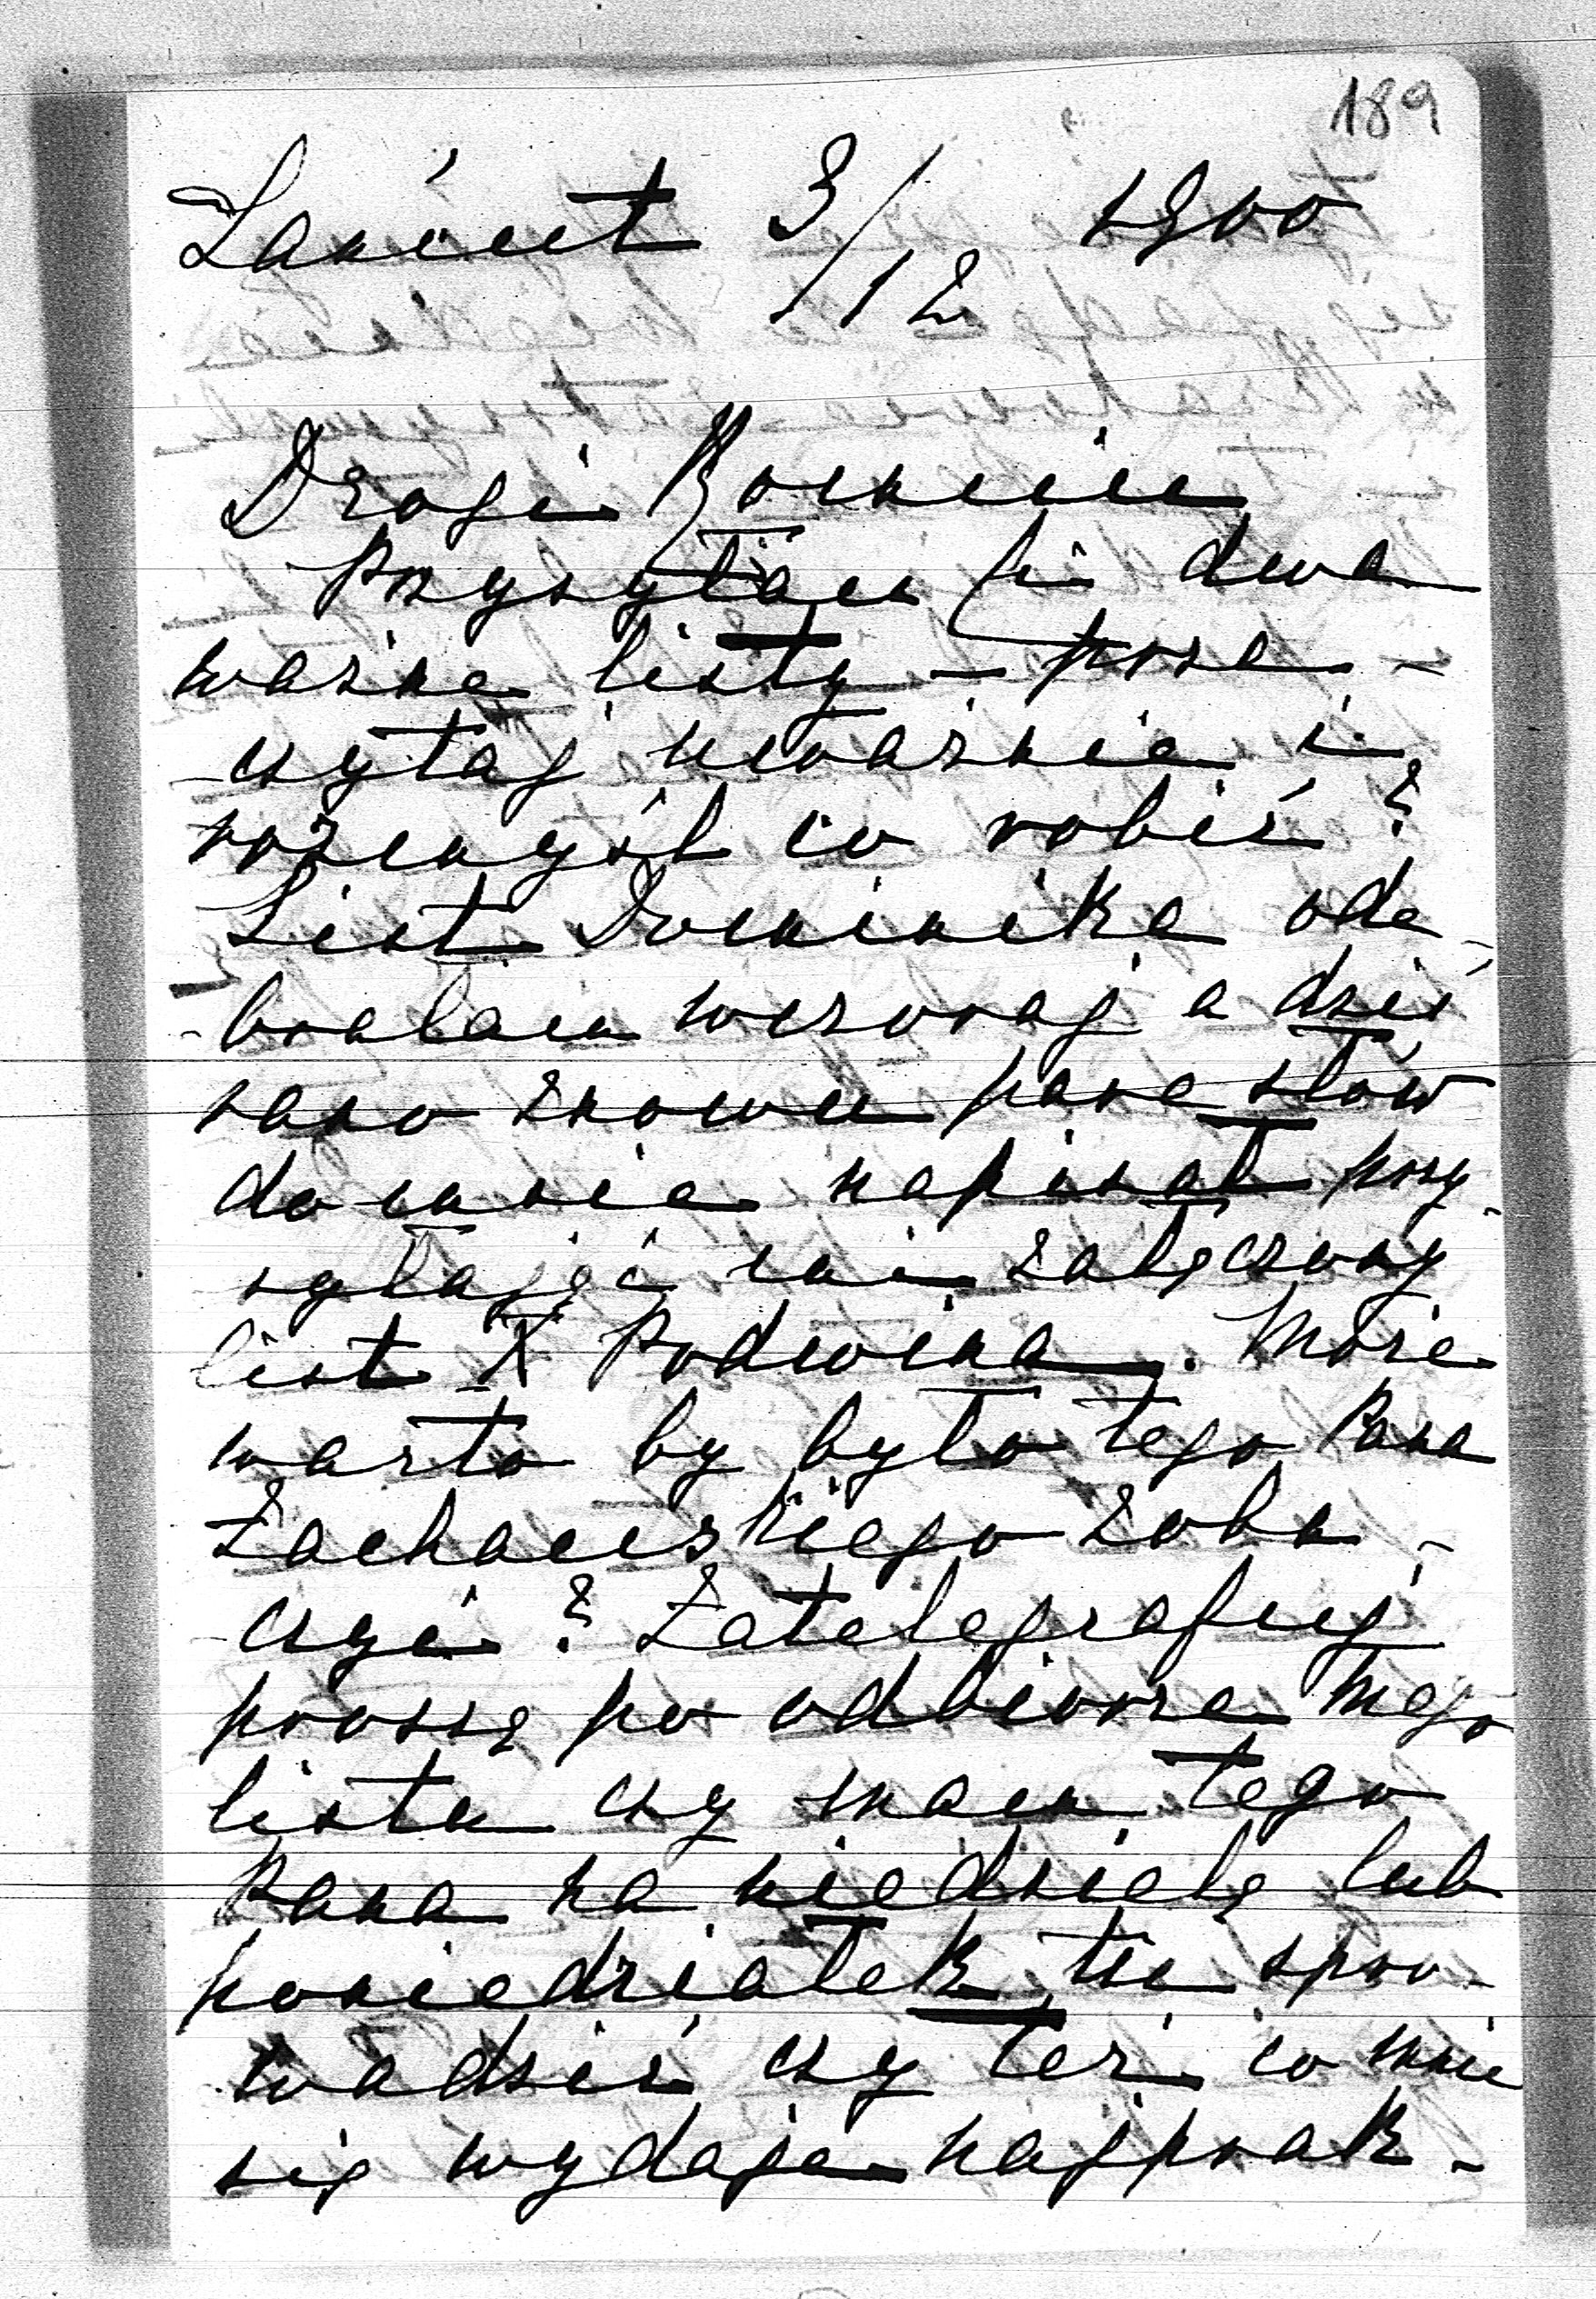 189
Łańcut 3/12 1900
Drogi Romciu
Przysyłam Ci dwa
ważne listy – prze-
czytaj uważnie i
rozmyśl co robić?
List Dominika ode-
brałam wczoraj a dziś
rano znowu parę słów
do mnie napisał przy-
syłając mi załączony
list X Podwina. Może
warto by było tego Pana
zoba-
czyć? Zatelegrafuj
proszę po odbiorze mego
listu czy mam tego
Pana na niedzielę lub
poniedziałek tu spro-
wadzić czy też co mnie
się wydaje najprak-